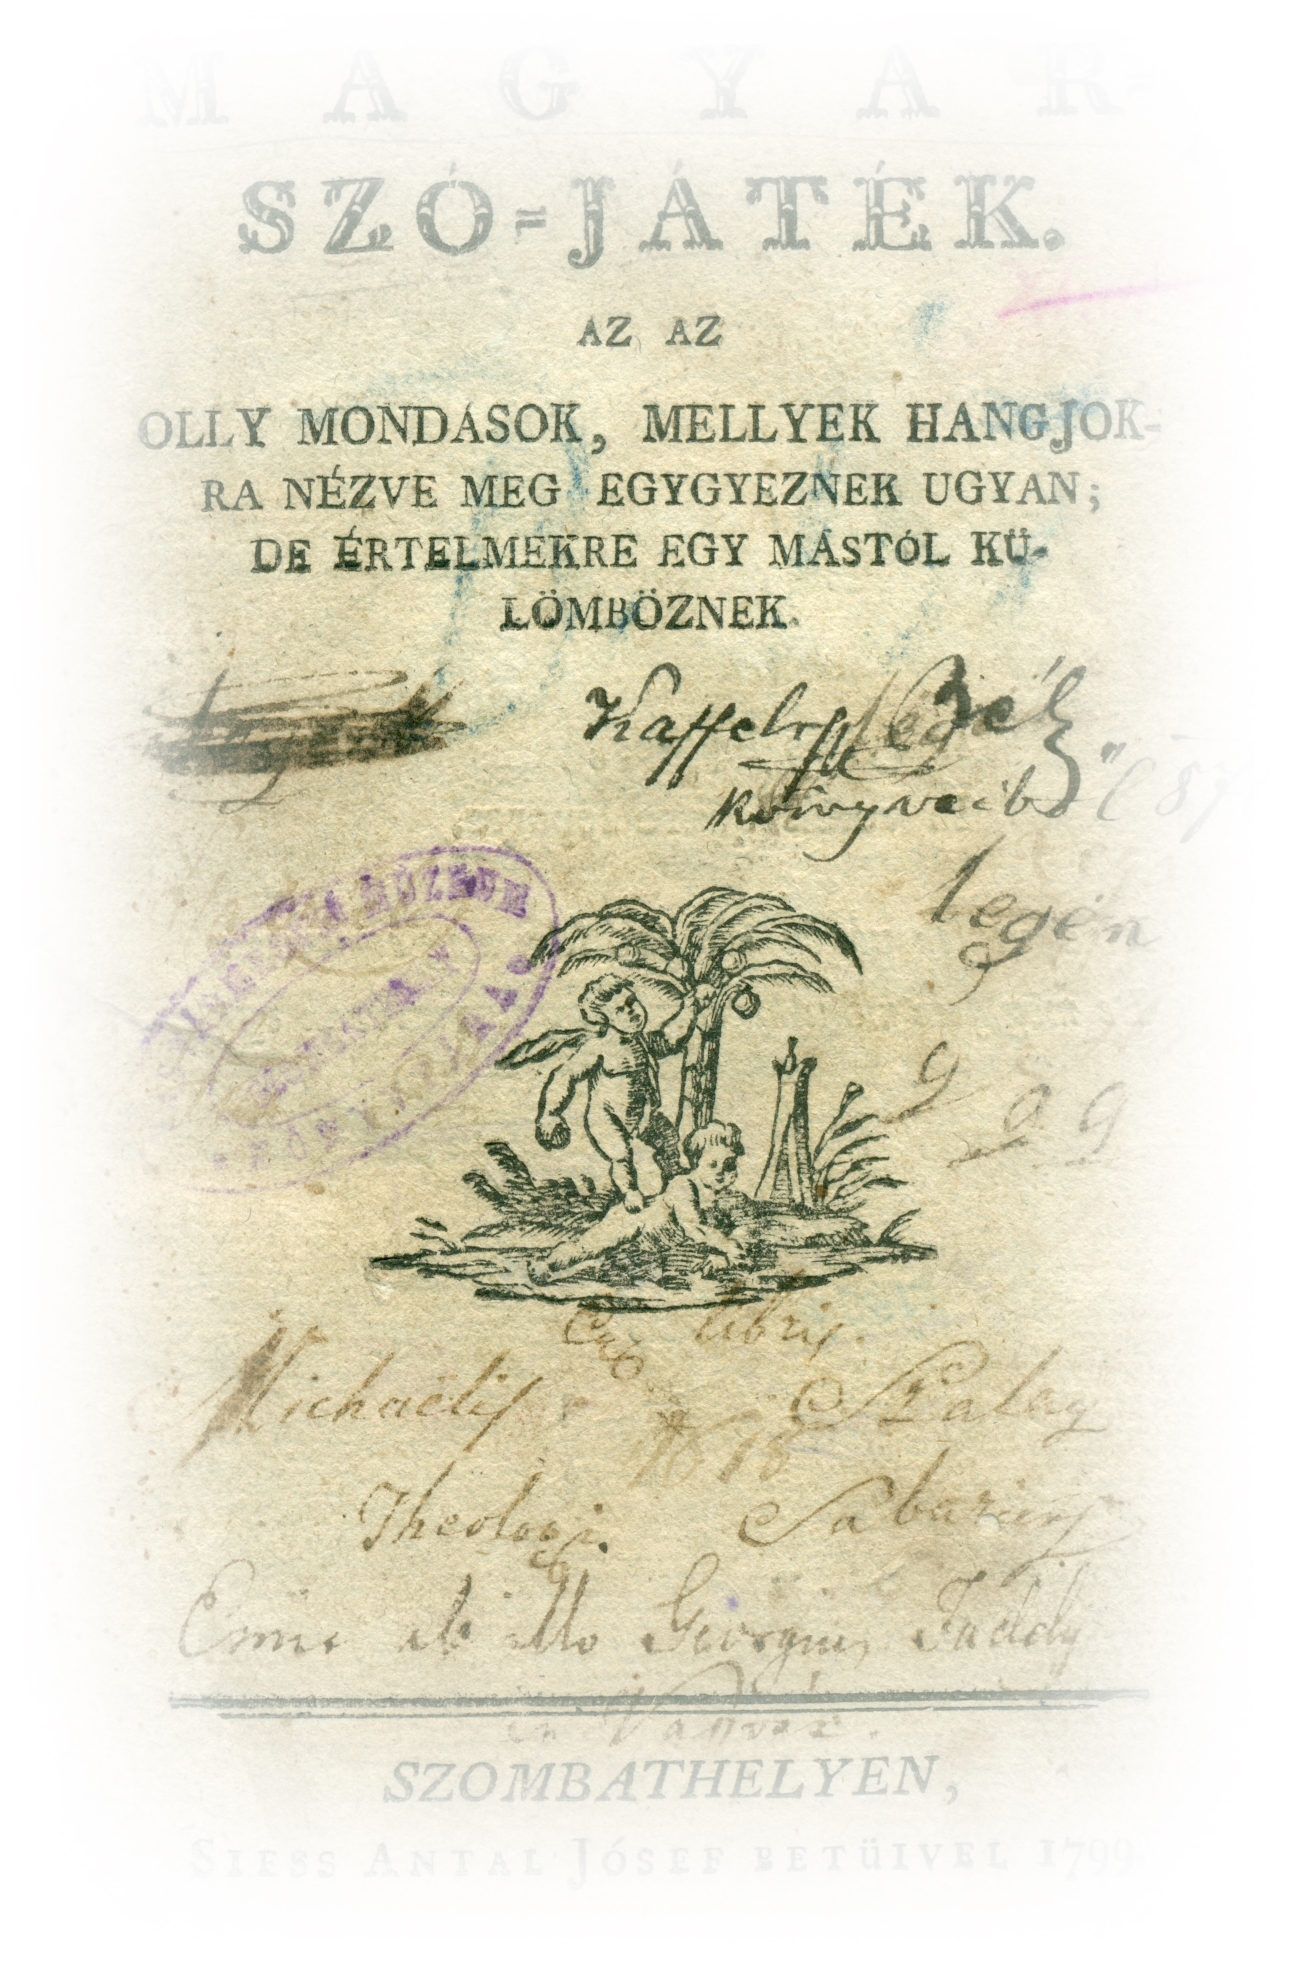 MAGYAR-
SZÓ-JÁTÉK.
AZ AZ
OLLY MONDÁSOK, MELLYEK HANGJOK-
RA NÉZVE MEG EGYGYEZNEK UGYAN;
DE ÉRTELMEKRE EGY MÁSTÓL KÜ-
LÖMBÖZNEK.
Béla
könyveiből
legén
MÚZEUM
Ex libris.
Michaëlis Szalay
1818
Theologi. Sabarius
ab illo Georgius
SZOMBATHELYEN,
SIESS ANTAL JÓSEF BETÜIVEL 1799.